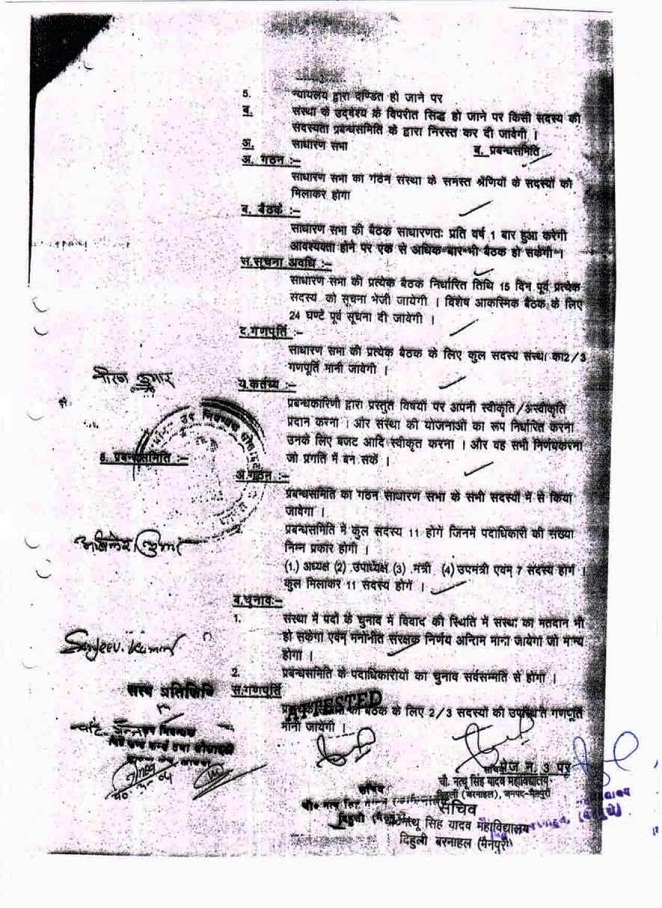 5. न्यायलय द्वारा दण्डित हो जाने पर
ब. संस्था के उद्देश्य के विपरीत सिद्ध हो जाने पर किसी सदस्य की
सदस्यता प्रबन्धसमिति के द्वारा निरस्त कर दी जावेगी ।
अ. साधारण सभा ब. प्रबन्धसमिति
अ. गठन :–
साधारण सभा का गठन संस्था के समस्त श्रेणियों के सदस्यों को
मिलाकर होगा
ब. बैठकें :–
साधारण सभा की बैठक साधारणतः प्रति वर्ष 1 बार हुआ करेगी
आवश्यक्ता होने पर एक से अधिक बार भी बैठक हो सकेंगी ।
स.सूचना अवधि :–
साधारण सभा की प्रत्येक बैठक निर्धारित तिथि 15 दिन पूर्व प्रत्येक
सदस्य को सूचना भेजी जायेगी । विशेष आकस्मिक बैठक के लिए
24 घण्टे पूर्व सूचना दी जावेगी ।
द.गणपूर्ति :–
साधारण सभा की प्रत्येक बैठक के लिए कुल सदस्य संस्था का2/3
गणपूर्ति मानी जावेगी ।
य.कर्तव्य :–
प्रबन्धकारिणी द्वारा प्रस्तुत विषयों पर अपनी स्वीकृति/अस्वीकृति
प्रदान करना । और संस्था की योजनाओं का रूप निर्धारित करना
उनके लिए बजट आदि स्वीकृत करना । और वह सभी निर्णयकरना
जो प्रगति में बन सकें ।
6. प्रबन्धसमिति :–
अ.गठन :–
प्रबन्धसमिति का गठन साधारण सभा के सभी सदस्यों में से किया
जावेगा ।
प्रबन्धसमिति में कुल सदस्य 11 होगें जिनमें पदाधिकारी की संख्या
निम्न प्रकार होगी ।
(1.) अध्यक्ष (2) उपाध्यक्ष (3) मंत्री (4) उपमंत्री एवम् 7 सदस्य होगें ।
कुल मिलाकर 11 सदस्य होगें ।
ब.चुनाव:–
1. संस्था में पदों के चुनाव में विवाद की स्थिति में संस्था का मतदान भी
हो सकेगा एवम् मनोनीत संरक्षक निर्णय अन्तिम माना जायेगा जो मान्य
होगा ।
2. प्रबन्धसमिति के पदाधिकारीयों का चुनाव सर्वसम्मति से होगा ।
स.गणपूर्ति
बैठक के लिए 2/3 सदस्यों की उपस्थिति गणपूर्ति
मानी जायेगी ।
ATTESTED
सत्य प्रतिलिपि
Sanjeev Kumar
पेज न. 3 पर
चौ. नत्थू सिंह यादव महाविद्यालय
दिहुली (बरनाहल), जनपद-मैनपुरी
सचिव
सचिव
नत्थू सिंह यादव महाविद्यालय
दिहुली बरनाहल (मैनपुरी)